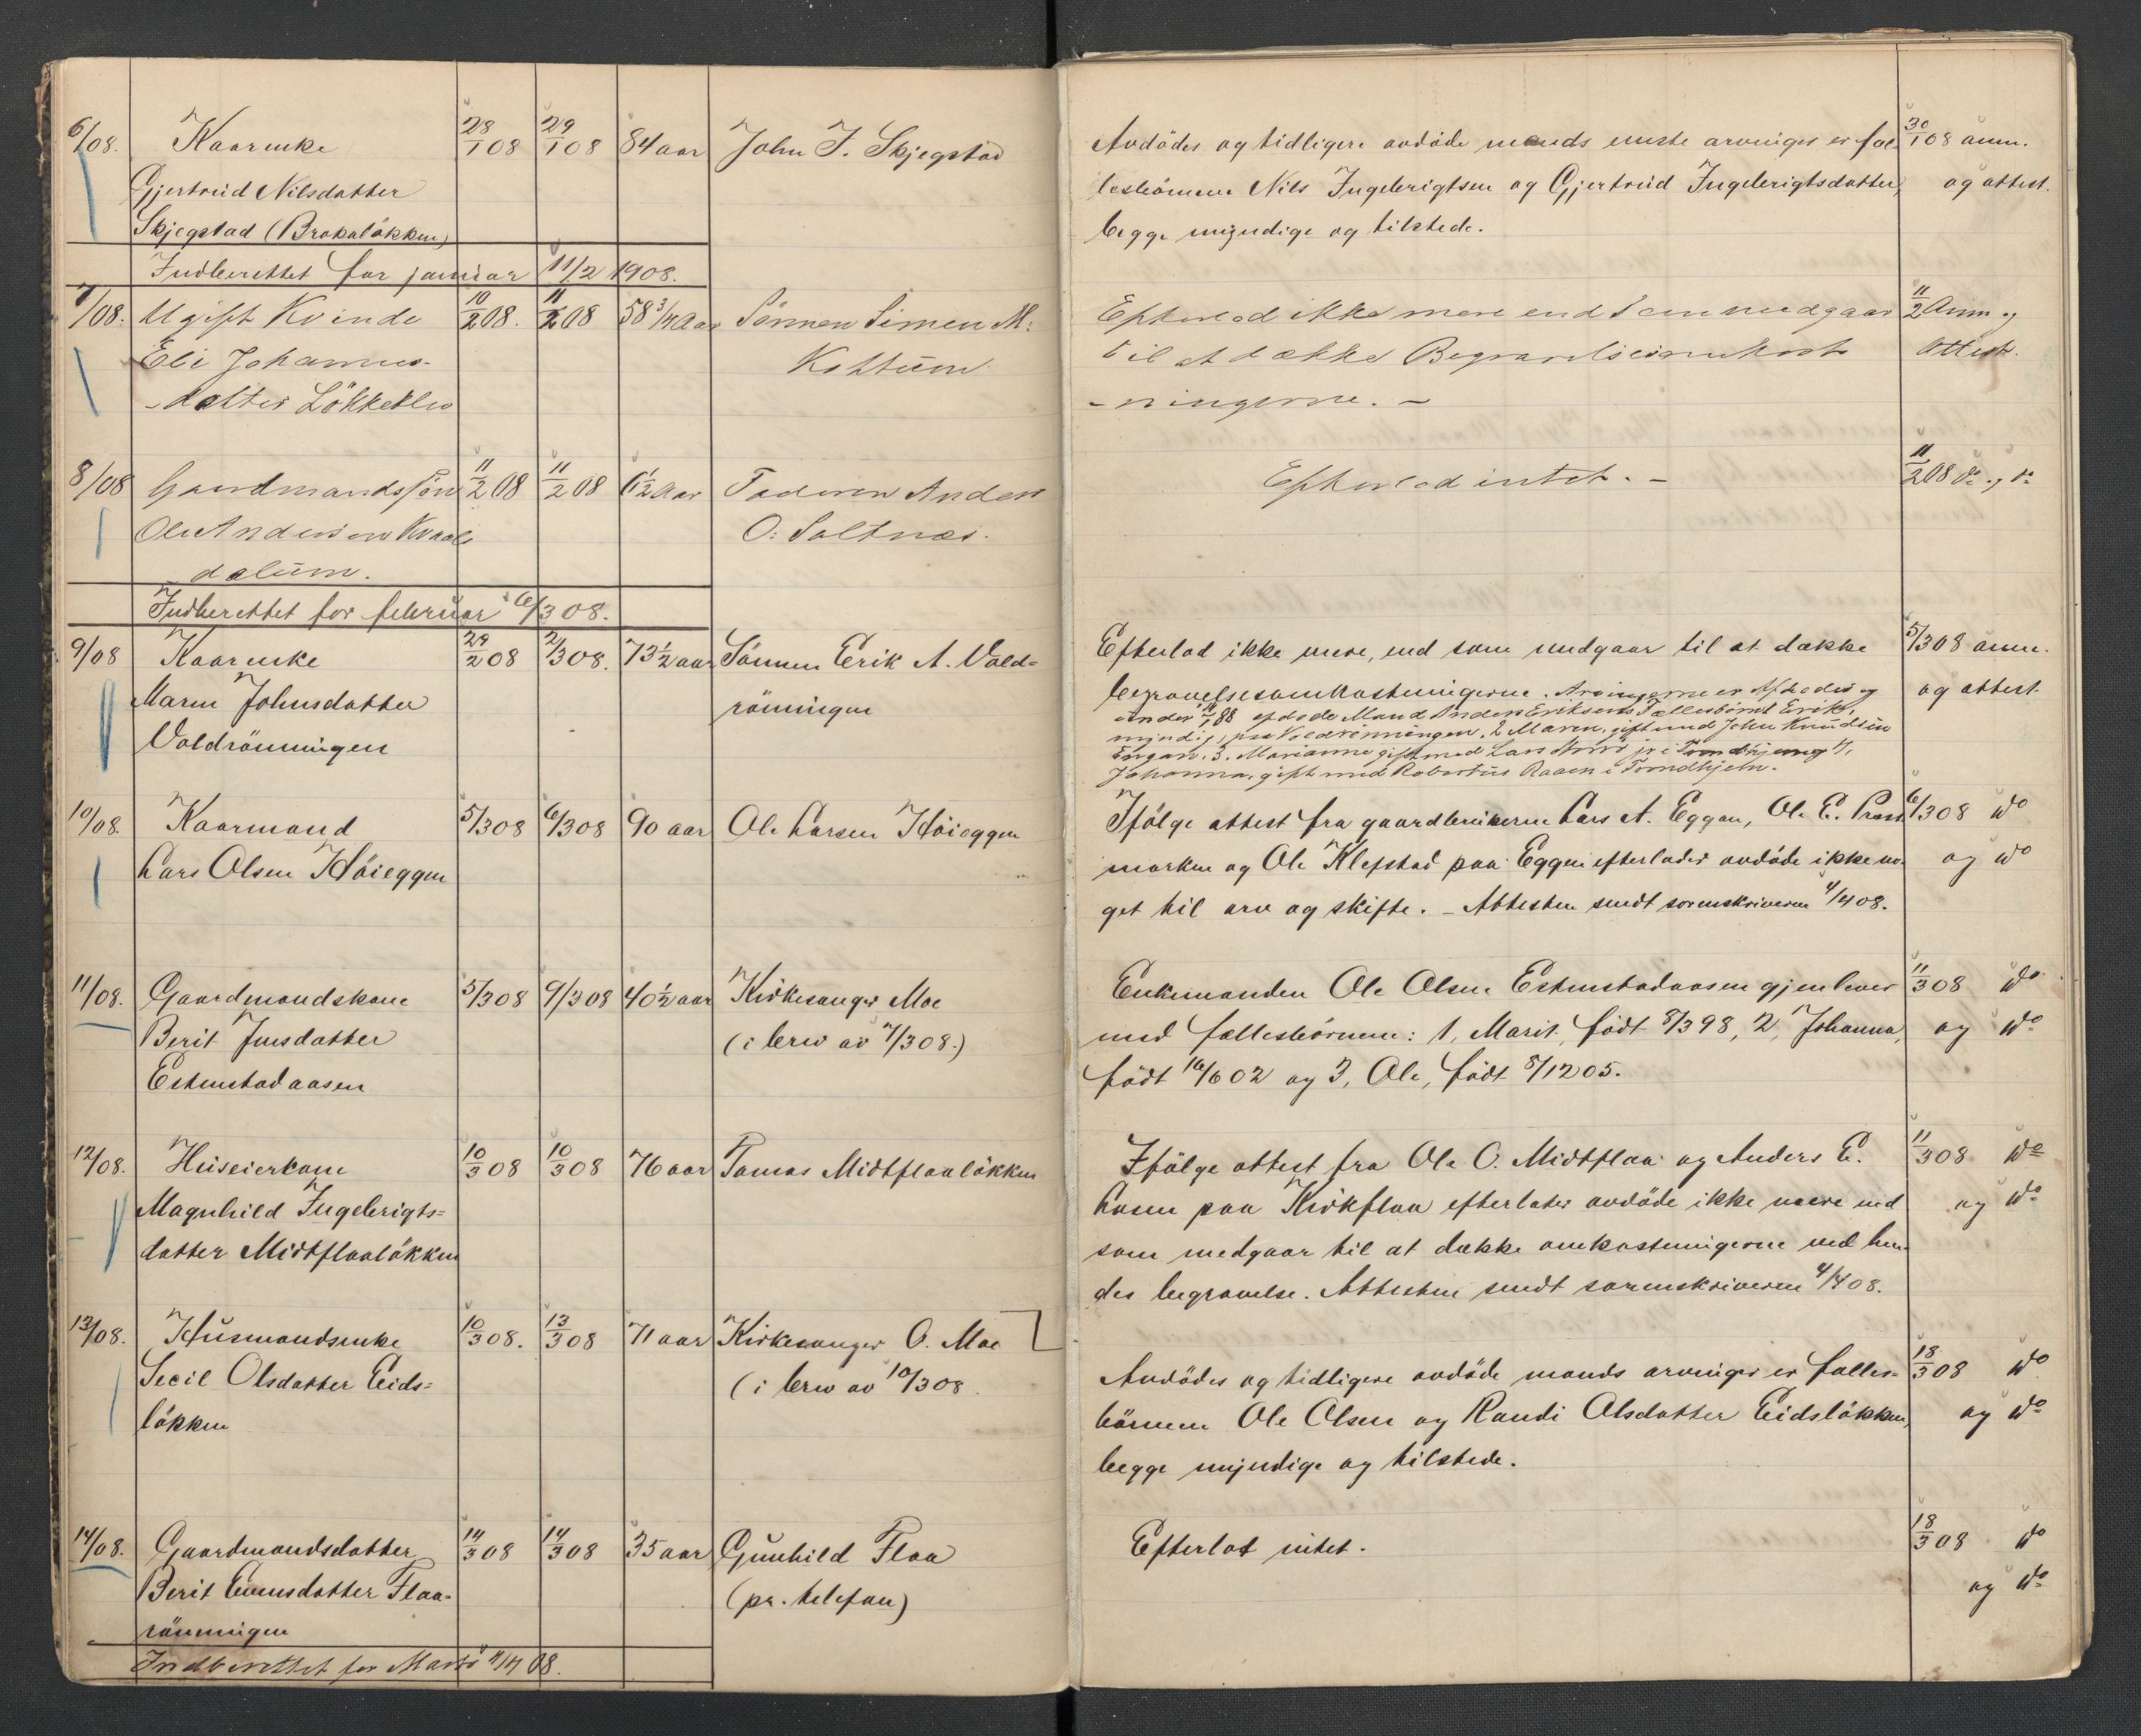 6/08. Kaarenke 28/1 08 29/1 08 84 aar John I. Skjegstad
Gjertrud Nilsdatter
Skjegstad (Brokaløkken)
Indberettet for januar 11/2 1908.
7/08. Ugift Kvinde 10/2 08. 11/2 08 58 3/4 aar Sönnen Simen M:
Eli Johannes-
-datter Løkkeklev Kohtum
8/08 Gaardmandssøn 11/2 08 11/2 08 6 1/2 aar Faderen Anders
Ole Andersen Kvaals O: Saltnæs.
dalum.
Indberettet for februar 6/3 08.
9/08 Kaarenke 29/2 08 2/3 08. 73 1/2 aar Sönnen Erik A. Vold=
Maren Johnsdatter rönningen
Voldrönningen
10/08. Kaarmand 5/3 08 6/3 08 90 aar Ole Larsen Höieggen
Lars Olsen Höieggen
11/08. Gaardmandskone 5/3 08 9/3 08 40 1/2 aar Kirkesanger Moe
Berit Jensdatter (i brev av 7/3 08.)
Estenstadaasen
12/08. Huseierkone 10/3 08 10/3 08 76 aar Tomas Midtflaaløkken
Magnhild Ingebrigts=
datter Midtflaaløkken
13/08. Husmandsenke 10/3 08. 13/3 08 71 aar Kirkesanger O. Moe
Secil Olsdatter Eids= (i brev av 10/3 08.
løkken
14/08. Gaardmandsdatter 14/3 08 14/3 08 35 aar Gunhild Flaa
Berit Evensdatter Flaa- (pr. telefon)
rönningen
Indberettet for Marts 4/4 08.
Avdödes og tidligere avdöde mands eneste arvinger er fæl- 30/1 08 anm.
lesbörnene Nils Ingebrigtsen og Gjertrud Ingebrigtsdatter, og attest.
begge myndige og tilstede.
Efterlod ikke mere end som medgaar 11/2 Anm og
til at dække Begravelsesomkost Attest.
-ningerne. -
Efterlod intet. - 11/2 08 do. og do
Efterlod ikke mere, end som medgaar til at dække 5/3 08 anm.
begravelsesomkostningerne. Arvingerne er Afdødes og og attest
under 88 afdøde Mand Anders Eriksens Fællesbörn 1 Erik,
myndig, paa Voldrönningen, 2 Maren, gift med John Knudsen
Engan, 3. Marianne gift med Lars jr i Trondhjem og 4,
Johanna, gift med Robertus Raaen i Trondhjem.
Ifölge attest fra gaardbrukerne Lars A. Eggen, Ole E. Prest 6/3 08 do
marken og Ole Klefstad paa Eggen efterlader avdöde ikke no- og do
get til arv og skifte. - Attesten sendt sorenskriveren 4/4 08.
Enkemanden Ole Olsen Estenstadaasen gjenlever 11/3 08 do
med fællesbörnene: 1, Marit, født 8/3 98, 2, Johanna, og do
født 16/6 02 og 3, Ole, født 8/12 05.
Ifölge attest fra Ole O. Midtflaa og Anders E. 11/3 08 do
paa Kirkflaa efterlater avdöde ikke mere end og do
som medgaar til at dække omkostningerne ved hen-
des begravelse. Attesten sendt sorenskriveren 4/4 08.
Avdödes og tidligere avdöde mands arvinger er fælles= 18/3 08 do
börnene Ole Olsen og Randi Olsdatter Eidsløkken, og do
begge myndige og tilstede.
Efterlot intet. 18/3 08 do
og do